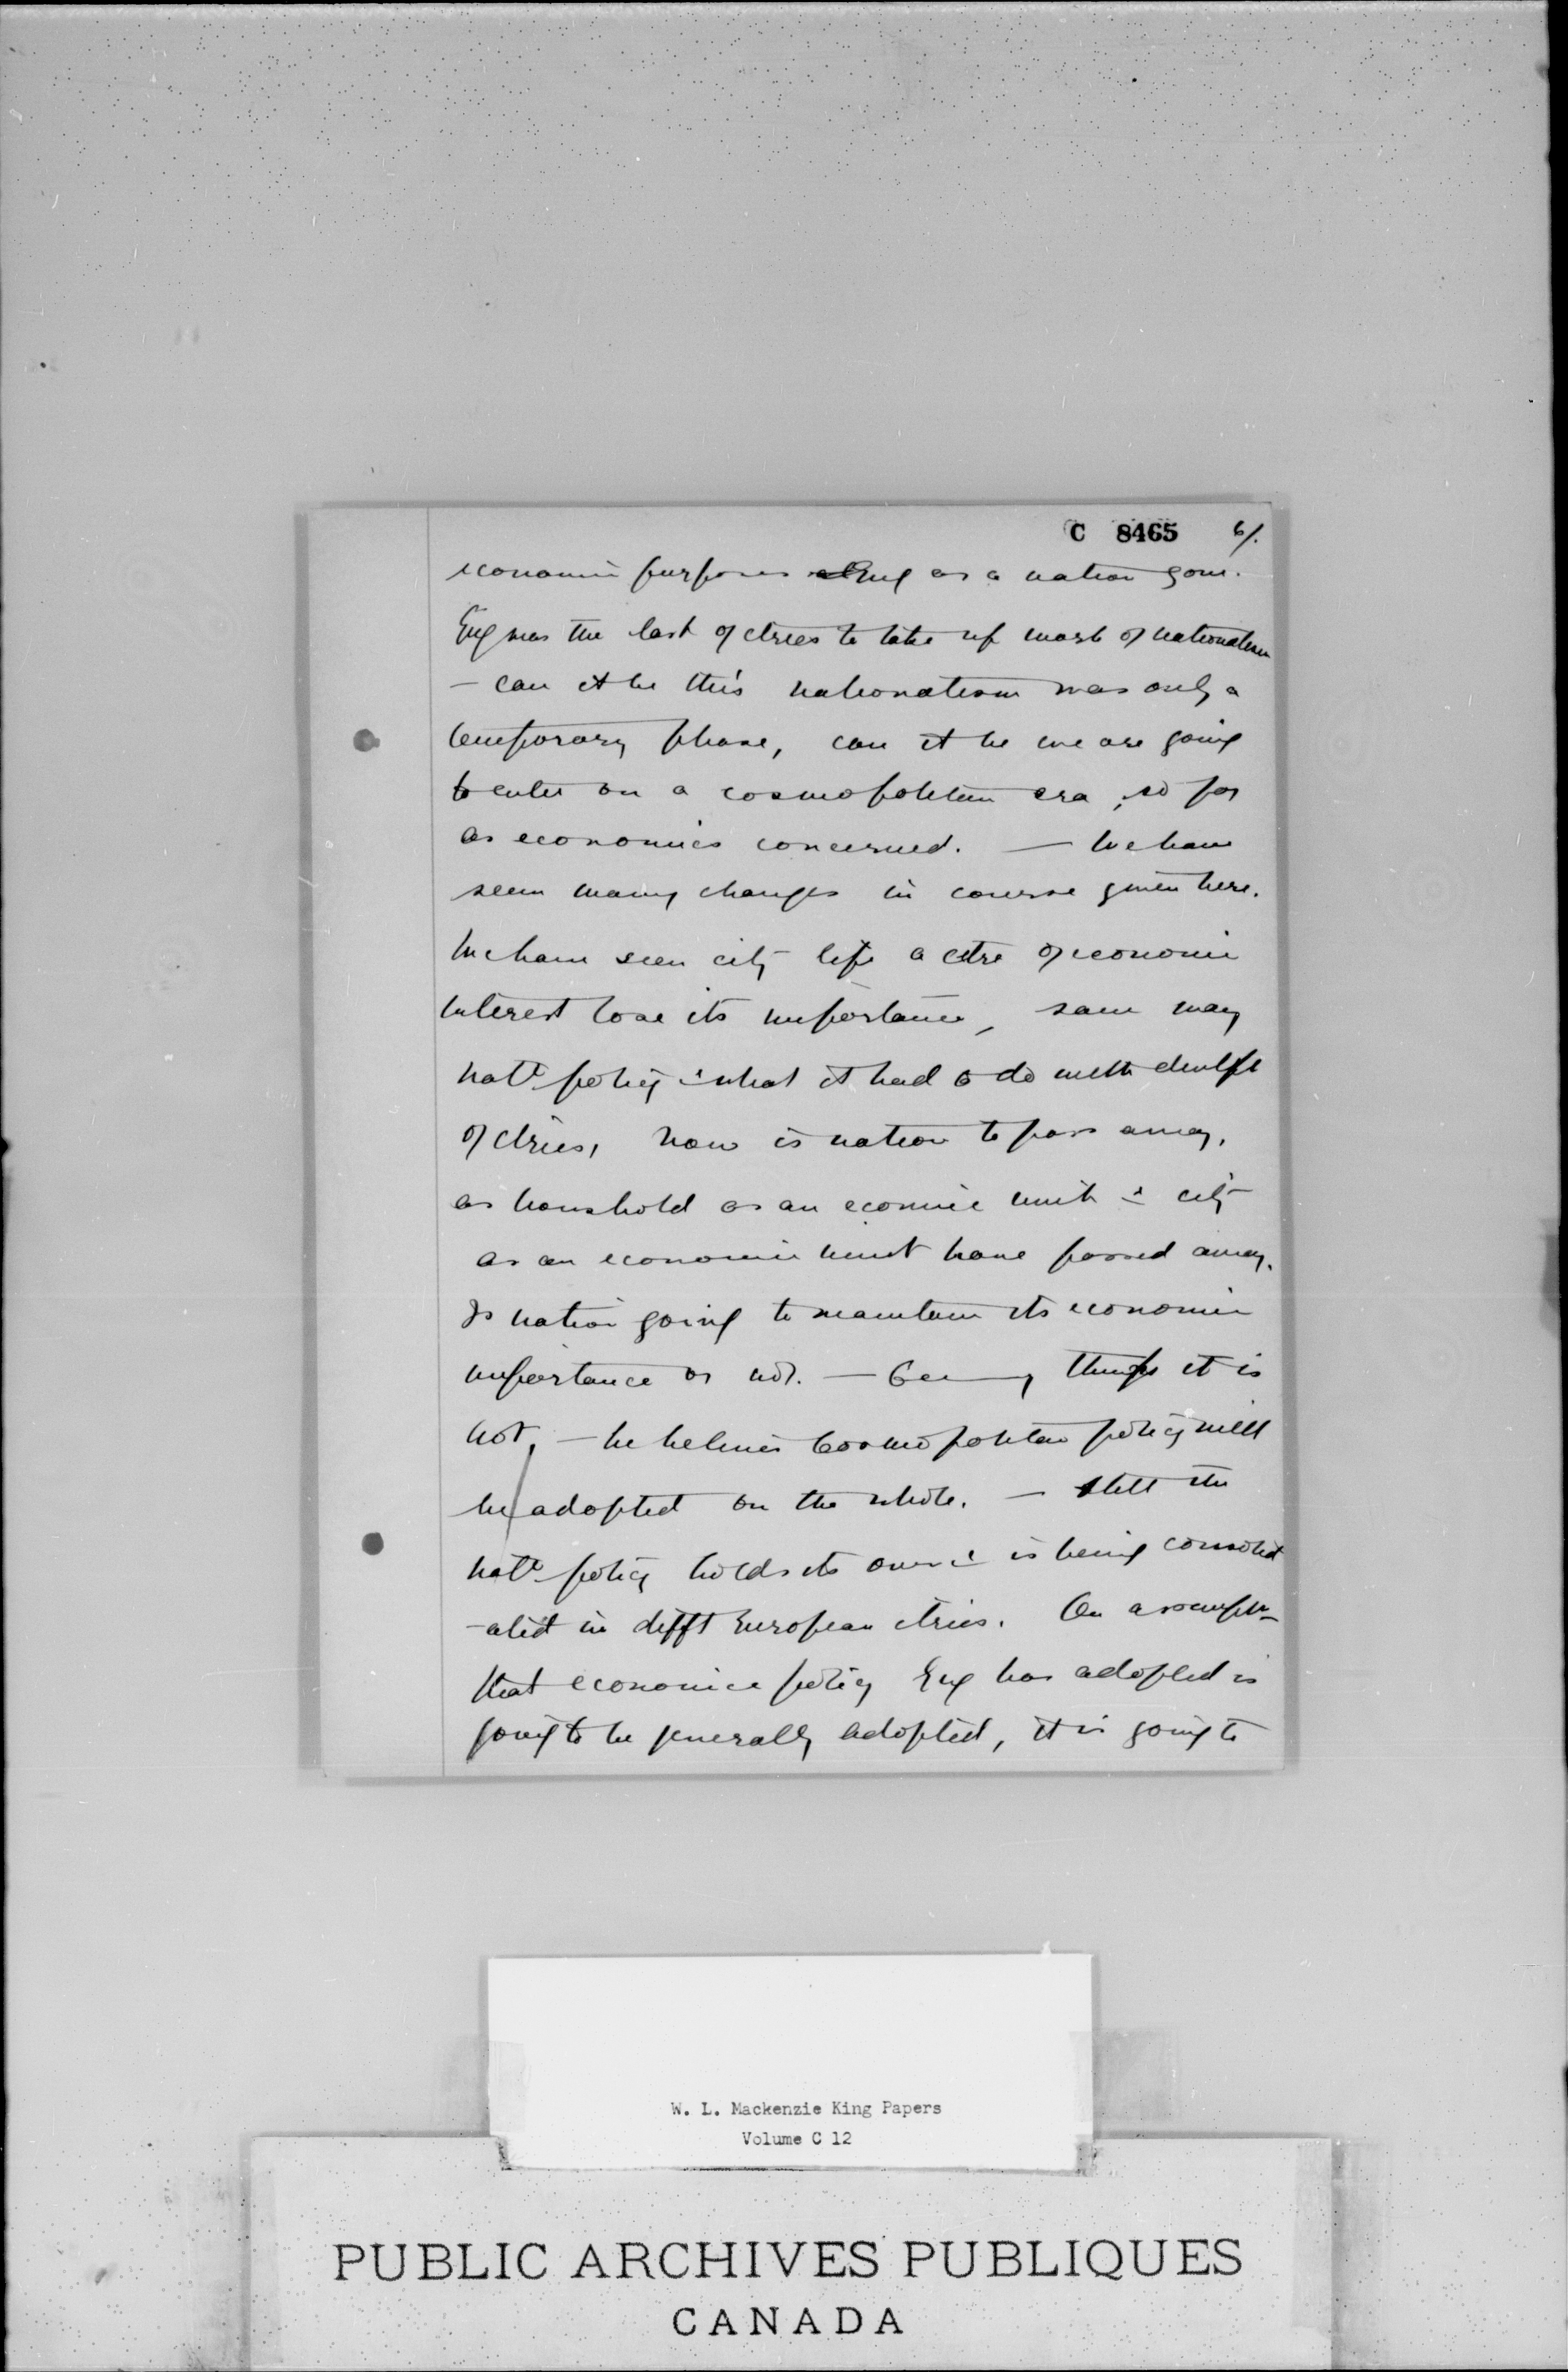 C 8465 6/.
economic purposes Eng as a nation gone.
Eng was the last of ctries to take up work of nationalism
– can it be this nationalism was only a
temporary phase, can it be we are going
to enter on a cosmopolitan era, so far
as economics concerned. — We have
seen many changes in course given here.
We have seen city life a ctre of economic
interest lose its importance, same way
natl policy & what it had to do with devlpt
of ctries, now is nation to pass away,
as household as an ecomic unit & city
as an economic unit have passed away.
Is nation going to maintain its economic
importance or not. — thinks it is
not, – he believes Cosmopolitan policy will
be adopted on the whole. — Still the
natl policy holds its own & is being consolid
-ated in difft European ctries. On assumptn
that economic policy Eng has adopted is
going to be generally adopted, it is going to
W. L. Mackenzie King Papers
Volume C 12
PUBLIC ARCHIVES PUBLIQUES
CANADA